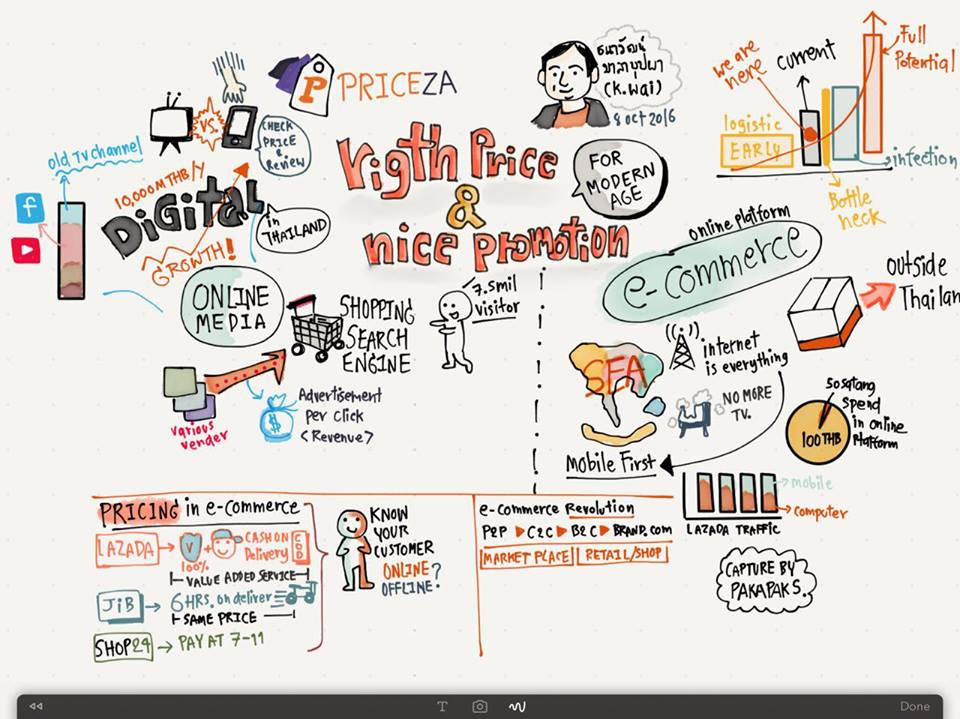 PRICEZA
P
ธนาวัฒน์
มาลาบุปผา
(K.wai)
8 oct 2016
Full
Potential
we are
here
current
logistic
EARLY
infection
Bottle
neck
old TV channel
VS.
CHECK
PRICE
&
Review
10,000M THB/y
DiGitaL
in
THAILAND
GROWTH!
f
Rigth Price
&
nice promotion
FOR
MODERN
AGE
ONLINE
MEDIA
SHOPPING
SEARCH
ENGINE
7.5mil
visitor
various
vender
$
Advertisement
per click
<Revenue>
online platform
e-commerce
outside
Thailan
SEA
internet
is everything
NO MORE
TV.
Mobile First
50 satang
spend
in online
Platform
100 THB
mobile
computer
LAZADA TRAFFIC
PRICING in e-commerce
LAZADA
V
+
100%
CASH ON
Delivery
COD
VALUE ADDED SERVICE
JiB
6 HRS. on deliver
SAME PRICE
SHOP24
PAY AT 7-11
KNOW
YOUR
CUSTOMER
ONLINE?
OFFLINE?
e-commerce Revolution
P2P ▶ C2C ▶ B2C ▶ BRAND.com
MARKET PLACE
RETAIL/SHOP
CAPTURE BY
PAKAPAK S.
T
Done